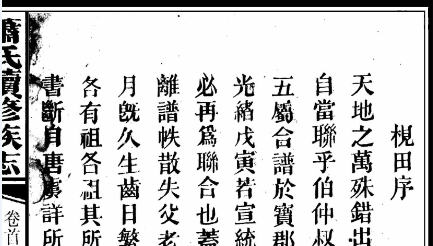 梘田序
天地之萬殊錯出
自當聯乎伯仲叔
五屬合譜於寶郡
光緒戊寅若宣統
必再爲聯合也蓋
離譜帙散失父老
月旣久生齒日繁
各有祖各祖其所
書斷自唐虞詳所
蕭氏續修族志
卷首